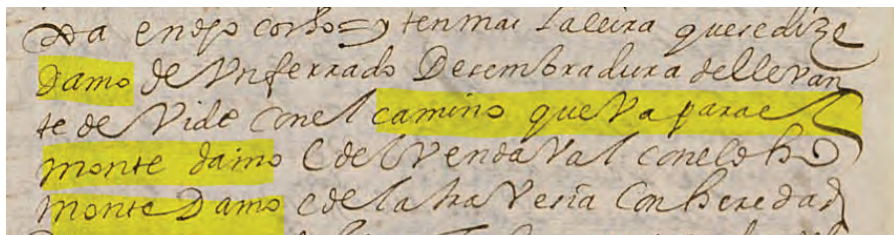 y ten mas La leira que se dize
damo de Vn ferrado De sembradura del levan
te de Vide con el camino que Va para el
monte damo E del Vendaval con el dho
monte Damo e de la traVesia Con heredad